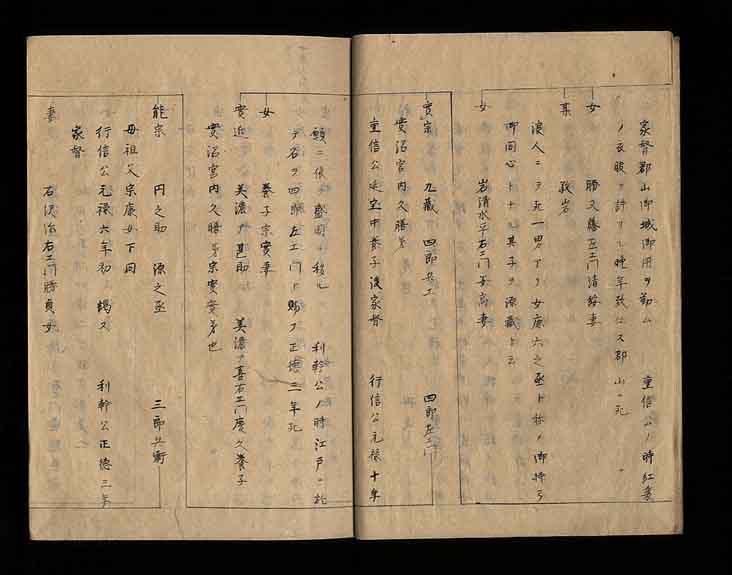 家督郡山御城御用ヲ勤ム　重信公ノ時紅裏
ノ衣服ヲ許サル晩年致仕ス郡山ニ死ス
女　勝又勝左エ門清 妻
某　政岩
浪人ニテ死一男アリ女庶六之丞ト称ス御持弓
御同心トナル其子ヲ源蔵ト云
女　岩清水平右エ門 妻
実宗　九蔵　四郎兵エ　四郎左エ門
実沼宮内久勝弟
重信公 宗中養子後家督　行信公元禄十年
頭ニ 盛岡ニ移ル　利幹公ノ時江戸ニ於
テ名ヲ四郎左エ門ト賜フ正徳三年死
女　養子宗実妻
実近　美濃ア甚助　美濃ア喜右エ門慶久養子
実沼宮内久勝弟宗実実弟也
能宗　円之助　源之丞　三郎兵衛
母祖父宗康女下同
行信公元禄六年初 謁ス　利幹公正徳三年
家督
妻　石沢治右エ門勝貞女